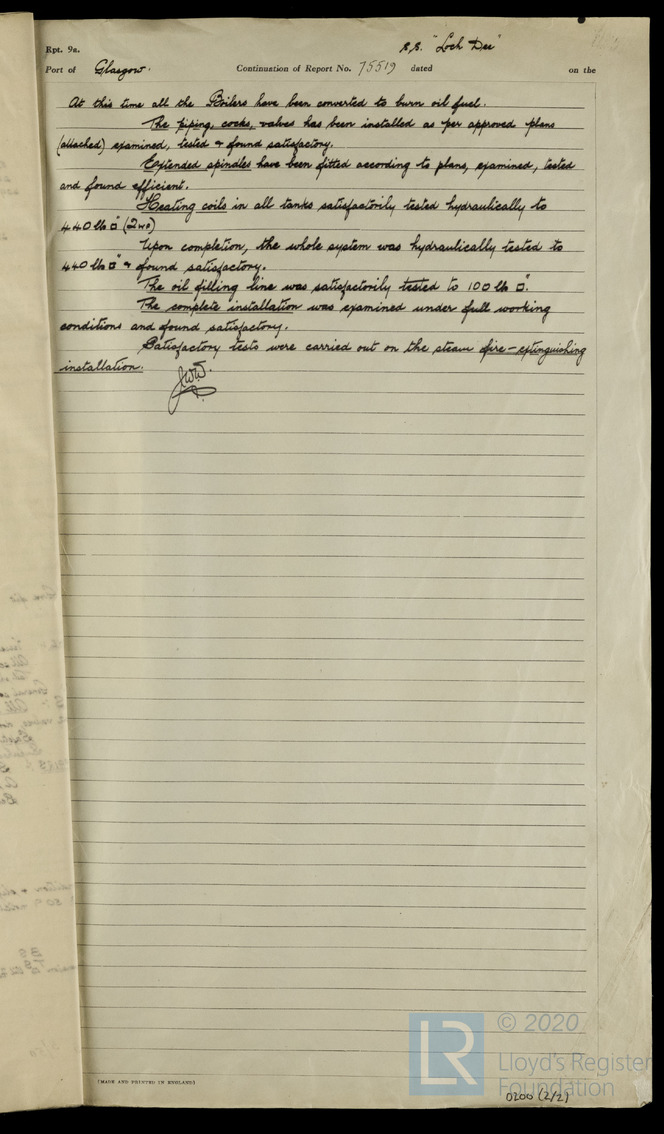 Rpt. 9a.
S.S. "Loch Dee"
Port of Glasgow. Continuation of Report No. 75519 dated on the
At this time all the Boilers have been converted to burn oil fuel.
The piping, cocks, valves has been installed as per approved plans
(attached) examined, tested & found satisfactory.
Extended spindles have been fitted according to plans, examined, tested
and found efficient.
Heating coils in all tanks satisfactorily tested hydraulically to
440 lb □" (2WP)
Upon completion, the whole system was hydraulically tested to
440 lb □" & found satisfactory.
The oil filling line was satisfactorily tested to 100 lb □".
The complete installation was examined under full working
conditions and found satisfactory.
Satisfactory tests were carried out on the steam fire-extinguishing
installation.
J.W.W.
(MADE AND PRINTED IN ENGLAND)
LR © 2020
Lloyd's Register
Foundation
0200 (2/2)